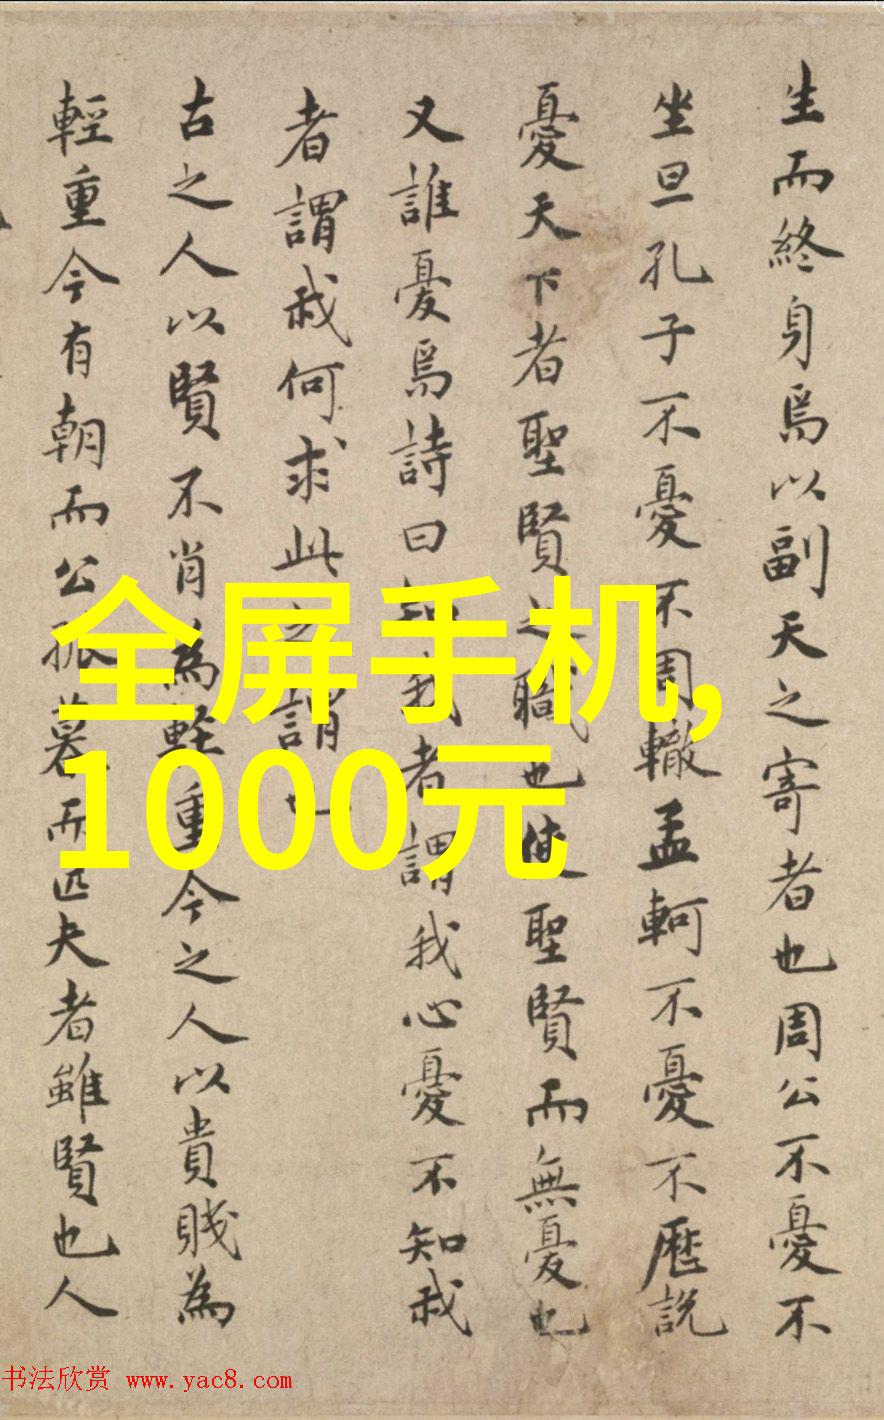 生而終身焉以副天之寄者也周公不憂不
坐旦孔子不憂不周轍孟軻不憂不歷說
憂天下者聖賢之職也使聖賢而無憂也
又誰憂焉詩曰知我者謂我心憂不知我
者謂我何求此之謂也
古之人以賢不肖為輕重今之人以貴賤為
輕重今有朝而公孤暮而匹夫者雖賢也人
全屏手机,
1000元
书法欣赏 www.yac8.com